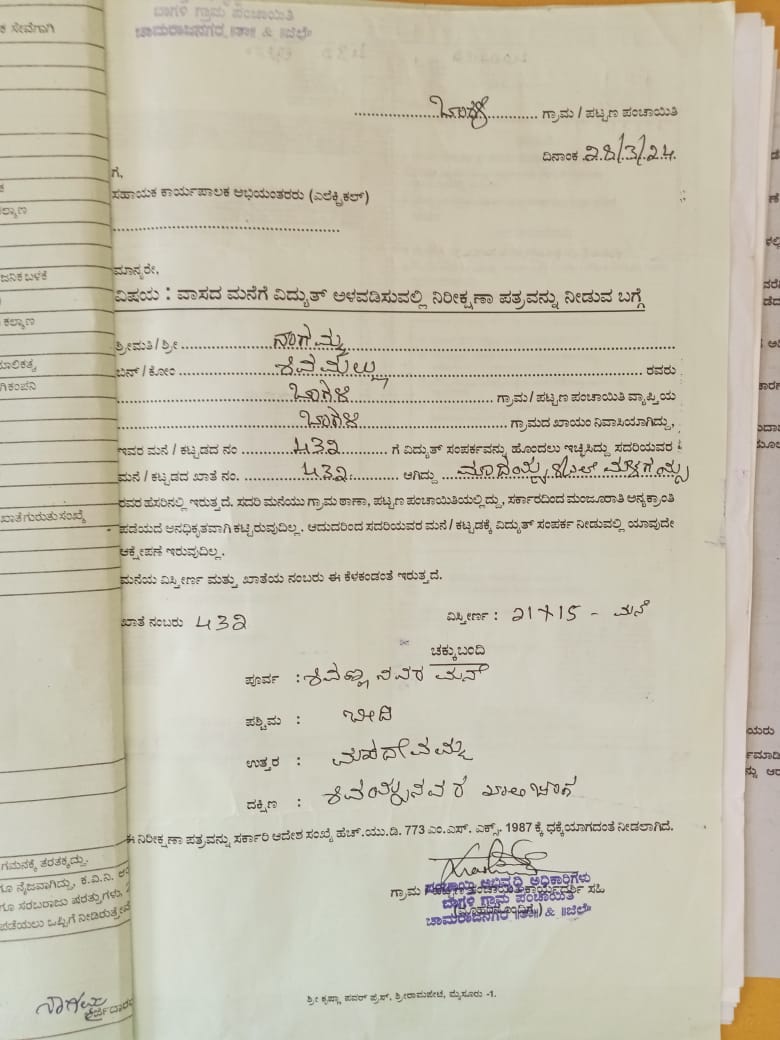 ಬಾಗಳಿ ಗ್ರಾಮ ಪಂಚಾಯಿತಿ
ಚಾಮರಾಜನಗರ ॥ತಾ॥ & ॥ಜಿಲ್ಲೆ
ಕ ಸೇವೆಗಾಗಿ
ಬಾಗಳಿ ಗ್ರಾಮ / ಪಟ್ಟಣ ಪಂಚಾಯಿತಿ
ದಿನಾಂಕ 28/3/24
ಗೆ,
ಸಹಾಯಕ ಕಾರ್ಯಪಾಲಕ ಅಭಿಯಂತರರು (ಎಲೆಕ್ಟ್ರಿಕಲ್)
ಮಾನ್ಯರೇ,
ವಿಷಯ : ವಾಸದ ಮನೆಗೆ ವಿದ್ಯುತ್ ಅಳವಡಿಸುವಲ್ಲಿ ನಿರೀಕ್ಷಣಾ ಪತ್ರವನ್ನು ನೀಡುವ ಬಗ್ಗೆ
ಶ್ರೀಮತಿ / ಶ್ರೀ ನಾಗಮ್ಮ
ಬಿನ್ / ಕೋಂ ಶಿವಮಲ್ಲು ರವರು
ಬಾಗಳಿ ಗ್ರಾಮ/ ಪಟ್ಟಣ ಪಂಚಾಯಿತಿ ವ್ಯಾಪ್ತಿಯ
ಬಾಗಳಿ ಗ್ರಾಮದ ಖಾಯಂ ನಿವಾಸಿಯಾಗಿದ್ದು,
ಇವರ ಮನೆ / ಕಟ್ಟಡದ ನಂ 432 ಗೆ ವಿದ್ಯುತ್ ಸಂಪರ್ಕವನ್ನು ಹೊಂದಲು ಇಚ್ಛಿಸಿದ್ದು ಸದರಿಯವರ
ಮನೆ / ಕಟ್ಟಡದ ಖಾತೆ ನಂ. 432 ಆಗಿದ್ದು
ರವರ ಹೆಸರಿನಲ್ಲಿ ಇರುತ್ತದೆ. ಸದರಿ ಮನೆಯು ಗ್ರಾಮ ಠಾಣಾ, ಪಟ್ಟಣ ಪಂಚಾಯಿತಿಯಲ್ಲಿದ್ದು, ಸರ್ಕಾರದಿಂದ ಮಂಜೂರಾತಿ ಅನ್ಯಕ್ರಾಂತಿ
ಪಡೆಯದೆ ಅನಧಿಕೃತವಾಗಿ ಕಟ್ಟಿರುವುದಿಲ್ಲ. ಆದುದರಿಂದ ಸದರಿಯವರ ಮನೆ / ಕಟ್ಟಡಕ್ಕೆ ವಿದ್ಯುತ್ ಸಂಪರ್ಕ ನೀಡುವಲ್ಲಿ ಯಾವುದೇ
ಆಕ್ಷೇಪಣೆ ಇರುವುದಿಲ್ಲ.
ಮನೆಯ ವಿಸ್ತೀರ್ಣ ಮತ್ತು ಖಾತೆಯ ನಂಬರು ಈ ಕೆಳಕಂಡಂತೆ ಇರುತ್ತದೆ.
ಖಾತೆ ನಂಬರು 432 ವಿಸ್ತೀರ್ಣ : 21+15 - ಮನೆ
ಚಕ್ಕುಬಂದಿ
ಪೂರ್ವ : ಶಿವಣ್ಣ ನವರ ಮನೆ
ಪಶ್ಚಿಮ : ಬೀದಿ
ಉತ್ತರ : ಮಹದೇವಮ್ಮ
ದಕ್ಷಿಣ : ಶಿವಯ್ಯನವರ ಖಾಲಿ ಜಾಗ
ಈ ನಿರೀಕ್ಷಣಾ ಪತ್ರವನ್ನು ಸರ್ಕಾರಿ ಆದೇಶ ಸಂಖ್ಯೆ ಹೆಚ್.ಯು.ಡಿ. 773 ಎಂ.ಎಸ್. ಎಕ್ಸ್. 1987 ಕ್ಕೆ ಧಕ್ಕೆಯಾಗದಂತೆ ನೀಡಲಾಗಿದೆ.
ಗ್ರಾಮ / ಪಟ್ಟಣ ಪಂಚಾಯಿತಿ ಕಾರ್ಯದರ್ಶಿ ಸಹಿ
(ಮೊಹರಿನೊಂದಿಗೆ)
ಪಂಚಾಯಿತಿ ಅಭಿವೃದ್ಧಿ ಅಧಿಕಾರಿಗಳು
ಬಾಗಳಿ ಗ್ರಾಮ ಪಂಚಾಯಿತಿ
ಚಾಮರಾಜನಗರ ॥ತಾ॥ & ॥ಜಿಲ್ಲೆ
ಶ್ರೀ ಕೃಷ್ಣಾ ಪವರ್ ಪ್ರೆಸ್, ಶ್ರೀರಾಮಪೇಟೆ, ಮೈಸೂರು -1.
ಖಾತೆ ಗುರುತು ಸಂಖ್ಯೆ
ಗಮನಕ್ಕೆ ತರತಕ್ಕದ್ದು.
ನಾಗಮ್ಮ